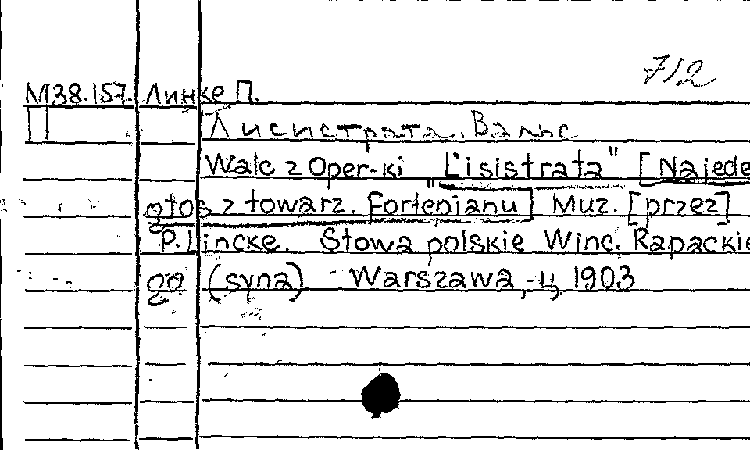 712
М38.157. Линке П.
Лисистрата. Вальс
Walc z Oper-ki "Lisistrata" [Na jede
głos z towarz. "Fortepianu] Muz. [przez]
P. Lincke. Słowa polskie Winc. Rapackie
go (syna) Warszawa, ц, 1903